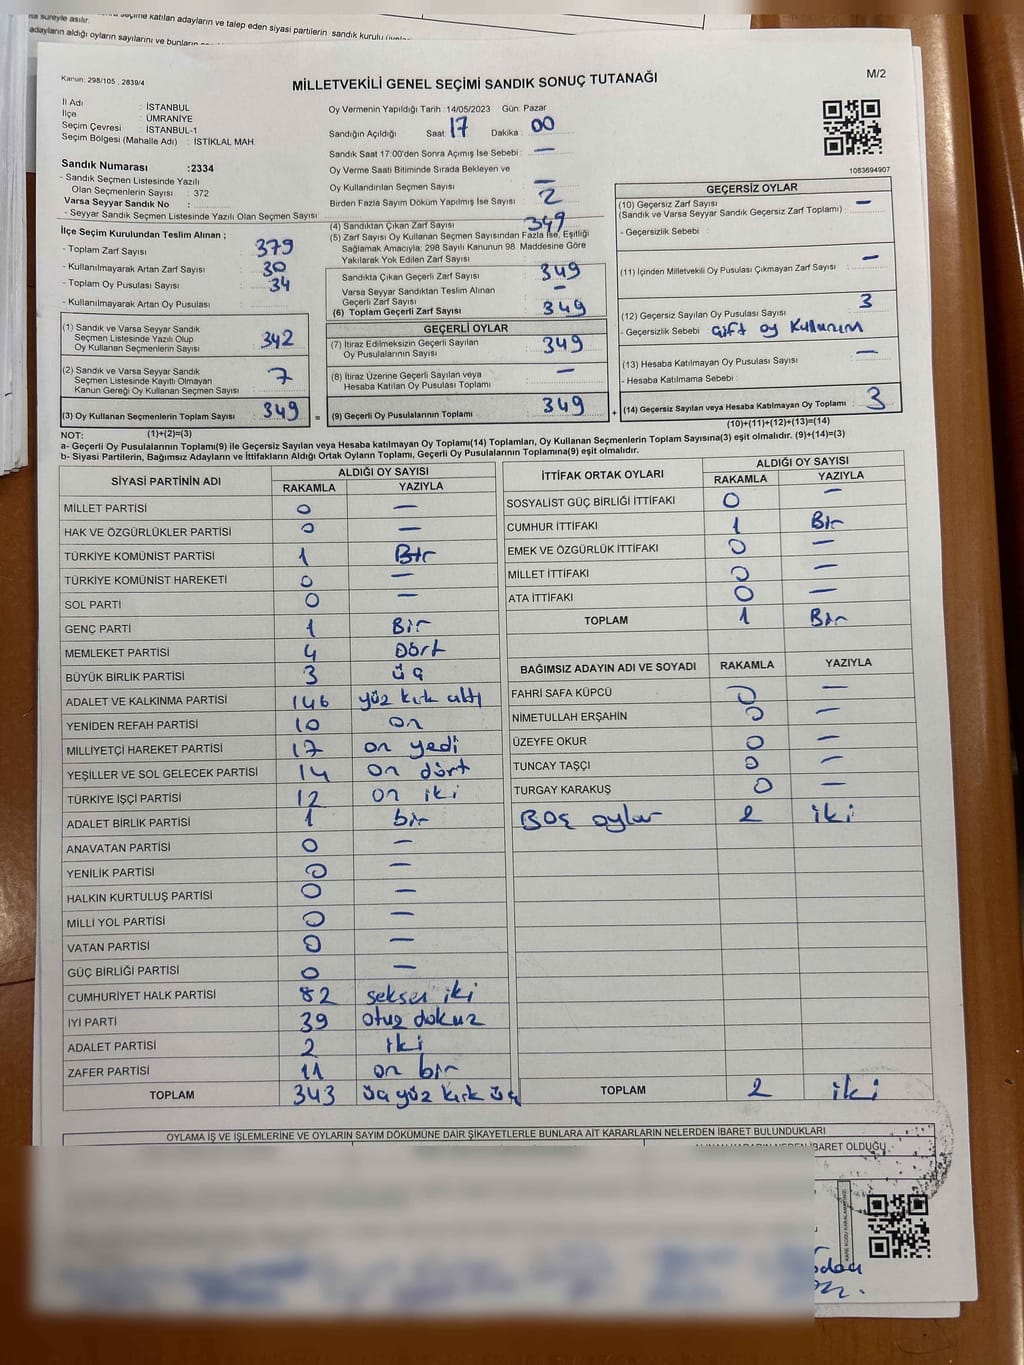 adayların aldığı oyların sayılarını ve bunların
Kanun: 298/105 , 2839/4
MİLLETVEKİLİ GENEL SEÇİMİ SANDIK SONUÇ TUTANAĞI
M/2
İl Adı : İSTANBUL
İlçe : ÜMRANİYE
Seçim Çevresi : İSTANBUL-1
Seçim Bölgesi (Mahalle Adı) : İSTİKLAL MAH.
Oy Vermenin Yapıldığı Tarih : 14/05/2023 Gün: Pazar
Sandığın Açıldığı Saat: 17 Dakika : 00
Sandık Saat 17:00'den Sonra Açılmış İse Sebebi : —
Oy Verme Saati Bitiminde Sırada Bekleyen ve
Oy Kullandırılan Seçmen Sayısı —
Birden Fazla Sayım Döküm Yapılmış İse Sayısı : 2
1083694907
Sandık Numarası :2334
- Sandık Seçmen Listesinde Yazılı
Olan Seçmenlerin Sayısı : 372
Varsa Seyyar Sandık No :
- Seyyar Sandık Seçmen Listesinde Yazılı Olan Seçmen Sayısı :
İlçe Seçim Kurulundan Teslim Alınan ;
- Toplam Zarf Sayısı : 379
- Kullanılmayarak Artan Zarf Sayısı : 30
- Toplam Oy Pusulası Sayısı : 34
- Kullanılmayarak Artan Oy Pusulası :
(1) Sandık ve Varsa Seyyar Sandık
Seçmen Listesinde Yazılı Olup
Oy Kullanan Seçmenlerin Sayısı : 342
(2) Sandık ve Varsa Seyyar Sandık
Seçmen Listesinde Kayıtlı Olmayan
Kanun Gereği Oy Kullanan Seçmen Sayısı : 7
(3) Oy Kullanan Seçmenlerin Toplam Sayısı : 349 =
(1)+(2)=(3)
(4) Sandıktan Çıkan Zarf Sayısı : 349
(5) Zarf Sayısı Oy Kullanan Seçmen Sayısından Fazla İse, Eşitliği
Sağlamak Amacıyla; 298 Sayılı Kanunun 98. Maddesine Göre
Yakılarak Yok Edilen Zarf Sayısı :
Sandıkta Çıkan Geçerli Zarf Sayısı : 349
Varsa Seyyar Sandıktan Teslim Alınan
Geçerli Zarf Sayısı : —
(6) Toplam Geçerli Zarf Sayısı : 349
GEÇERLİ OYLAR
(7) İtiraz Edilmeksizin Geçerli Sayılan
Oy Pusulalarının Sayısı : 349
(8) İtiraz Üzerine Geçerli Sayılan veya
Hesaba Katılan Oy Pusulası Toplamı : —
(9) Geçerli Oy Pusulalarının Toplamı : 349 +
GEÇERSİZ OYLAR
(10) Geçersiz Zarf Sayısı : —
(Sandık ve Varsa Seyyar Sandık Geçersiz Zarf Toplamı)
- Geçersizlik Sebebi :
(11) İçinden Milletvekili Oy Pusulası Çıkmayan Zarf Sayısı : —
(12) Geçersiz Sayılan Oy Pusulası Sayısı : 3
- Geçersizlik Sebebi : çift oy kullanım
(13) Hesaba Katılmayan Oy Pusulası Sayısı : —
- Hesaba Katılmama Sebebi :
(14) Geçersiz Sayılan veya Hesaba Katılmayan Oy Toplamı : 3
(10)+(11)+(12)+(13)=(14)
NOT:
a- Geçerli Oy Pusulalarının Toplamı(9) ile Geçersiz Sayılan veya Hesaba katılmayan Oy Toplamı(14) Toplamları, Oy Kullanan Seçmenlerin Toplam Sayısına(3) eşit olmalıdır. (9)+(14)=(3)
b- Siyasi Partilerin, Bağımsız Adayların ve İttifakların Aldığı Ortak Oyların Toplamı, Geçerli Oy Pusulalarının Toplamına(9) eşit olmalıdır.
SİYASİ PARTİNİN ADI ALDIĞI OY SAYISI
RAKAMLA YAZIYLA
MİLLET PARTİSİ 0 —
HAK VE ÖZGÜRLÜKLER PARTİSİ 0 —
TÜRKİYE KOMÜNİST PARTİSİ 1 Bir
TÜRKİYE KOMÜNİST HAREKETİ 0 —
SOL PARTİ 0 —
GENÇ PARTİ 1 Bir
MEMLEKET PARTİSİ 4 Dört
BÜYÜK BİRLİK PARTİSİ 3 üç
ADALET VE KALKINMA PARTİSİ 146 yüz kırk altı
YENİDEN REFAH PARTİSİ 10 on
MİLLİYETÇİ HAREKET PARTİSİ 17 on yedi
YEŞİLLER VE SOL GELECEK PARTİSİ 14 on dört
TÜRKİYE İŞÇİ PARTİSİ 12 on iki
ADALET BİRLİK PARTİSİ 1 bir
ANAVATAN PARTİSİ 0 —
YENİLİK PARTİSİ 0 —
HALKIN KURTULUŞ PARTİSİ 0 —
MİLLİ YOL PARTİSİ 0 —
VATAN PARTİSİ 0 —
GÜÇ BİRLİĞİ PARTİSİ 0 —
CUMHURİYET HALK PARTİSİ 82 seksen iki
İYİ PARTİ 39 otuz dokuz
ADALET PARTİSİ 2 iki
ZAFER PARTİSİ 11 on bir
TOPLAM 343 üç yüz kırk üç
İTTİFAK ORTAK OYLARI ALDIĞI OY SAYISI
RAKAMLA YAZIYLA
SOSYALİST GÜÇ BİRLİĞİ İTTİFAKI 0 —
CUMHUR İTTİFAKI 1 Bir
EMEK VE ÖZGÜRLÜK İTTİFAKI 0 —
MİLLET İTTİFAKI 0 —
ATA İTTİFAKI 0 —
TOPLAM 1 Bir
BAĞIMSIZ ADAYIN ADI VE SOYADI RAKAMLA YAZIYLA
FAHRİ SAFA KÜPCÜ 0 —
NİMETULLAH ERŞAHİN 0 —
ÜZEYFE OKUR 0 —
TUNCAY TAŞÇI 0 —
TURGAY KARAKUŞ 0 —
Boş oylar 2 iki
TOPLAM 2 iki
OYLAMA İŞ VE İŞLEMLERİNE VE OYLARIN SAYIM DÖKÜMÜNE DAİR ŞİKAYETLERLE BUNLARA AİT KARARLARIN NELERDEN İBARET BULUNDUKLARI
İBARET OLDUĞU